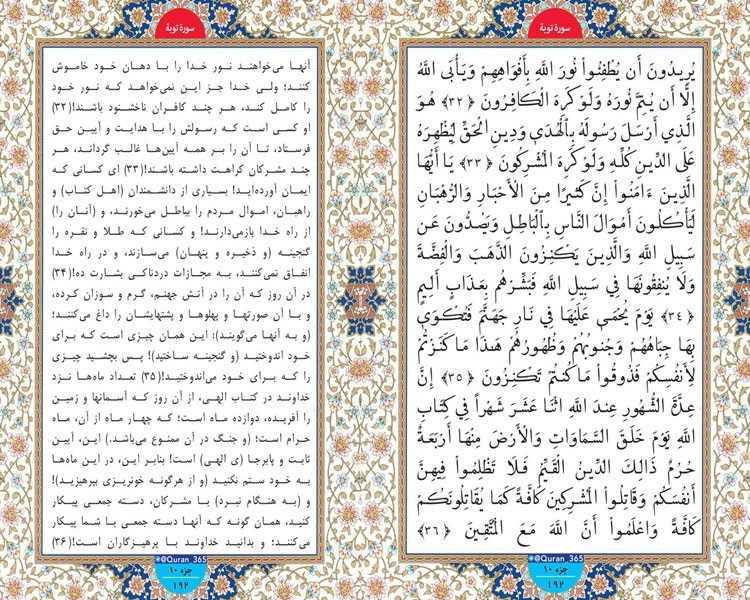 سورة توبة
يُرِيدُونَ أَن يُطْفِئُوا نُورَ اللَّهِ بِأَفْوَاهِهِمْ وَيَأْبَى اللَّهُ
إِلَّا أَن يُتِمَّ نُورَهُ وَلَوْ كَرِهَ الْكَافِرُونَ ﴿٣٢﴾ هُوَ
الَّذِي أَرْسَلَ رَسُولَهُ بِالْهُدَى وَدِينِ الْحَقِّ لِيُظْهِرَهُ
عَلَى الدِّينِ كُلِّهِ وَلَوْ كَرِهَ الْمُشْرِكُونَ ﴿٣٣﴾ يَا أَيُّهَا
الَّذِينَ ءَامَنُوا إِنَّ كَثِيرًا مِنَ الْأَحْبَارِ وَالرُّهْبَانِ
لَيَأْكُلُونَ أَمْوَالَ النَّاسِ بِالْبَاطِلِ وَيَصُدُّونَ عَن
سَبِيلِ اللَّهِ وَالَّذِينَ يَكْنِزُونَ الذَّهَبَ وَالْفِضَّةَ
وَلَا يُنفِقُونَهَا فِي سَبِيلِ اللَّهِ فَبَشِّرْهُم بِعَذَابٍ أَلِيمٍ
﴿٣٤﴾ يَوْمَ يُحْمَى عَلَيْهَا فِي نَارِ جَهَنَّمَ فَتُكْوَى
بِهَا جِبَاهُهُمْ وَجُنُوبُهُمْ وَظُهُورُهُمْ هَذَا مَا كَنَزْتُمْ
لِأَنفُسِكُمْ فَذُوقُوا مَا كُنتُمْ تَكْنِزُونَ ﴿٣٥﴾ إِنَّ
عِدَّةَ الشُّهُورِ عِندَ اللَّهِ اثْنَا عَشَرَ شَهْرًا فِي كِتَابِ
اللَّهِ يَوْمَ خَلَقَ السَّمَاوَاتِ وَالْأَرْضَ مِنْهَا أَرْبَعَةٌ
حُرُمٌ ذَالِكَ الدِّينُ الْقَيِّمُ فَلَا تَظْلِمُوا فِيهِنَّ
أَنفُسَكُمْ وَقَاتِلُوا الْمُشْرِكِينَ كَافَّةً كَمَا يُقَاتِلُونَكُمْ
كَافَّةً وَاعْلَمُوا أَنَّ اللَّهَ مَعَ الْمُتَّقِينَ ﴿٣٦﴾
@Quran_365
جزء ١٠
١٩٢
سورة توبة
آنها می‌خواهند نور خدا را با دهان خود خاموش
کنند؛ ولی خدا جز این نمی‌خواهد که نور خود
را کامل کند، هر چند کافران ناخشنود باشند!(۳۲)
او کسی است که رسولش را با هدایت و آیین حق
فرستاد، تا آن را بر همه آیین‌ها غالب گرداند، هر
چند مشرکان کراهت داشته باشند!(۳۳) ای کسانی که
ایمان آورده‌اید! بسیاری از دانشمندان (اهل کتاب) و
راهبان، اموال مردم را بباطل می‌خورند، و (آنان را)
از راه خدا بازمی‌دارند! و کسانی که طلا و نقره را
گنجینه (و ذخیره و پنهان) می‌سازند، و در راه خدا
انفاق نمی‌کنند، به مجازات دردناکی بشارت ده!(۳۴)
در آن روز که آن را در آتش جهنم، گرم و سوزان کرده،
و با آن صورتها و پهلوها و پشتهایشان را داغ می‌کنند؛
(و به آنها می‌گویند): این همان چیزی است که برای
خود اندوختید (و گنجینه ساختید)! پس بچشید چیزی
را که برای خود می‌اندوختید!(۳۵) تعداد ماه‌ها نزد
خداوند در کتاب الهی، از آن روز که آسمانها و زمین
را آفریده، دوازده ماه است؛ که چهار ماه از آن، ماه
حرام است؛ (و جنگ در آن ممنوع می‌باشد.) این، آیین
ثابت و پابرجا (ی الهی) است! بنابر این، در این ماه‌ها
به خود ستم نکنید (و از هرگونه خونریزی بپرهیزید)!
و (به هنگام نبرد) با مشرکان، دسته جمعی پیکار
کنید، همان گونه که آنها دسته جمعی با شما پیکار
می‌کنند؛ و بدانید خداوند با پرهیزگاران است!(۳۶)
@Quran_365
جزء ١٠
١٩٢